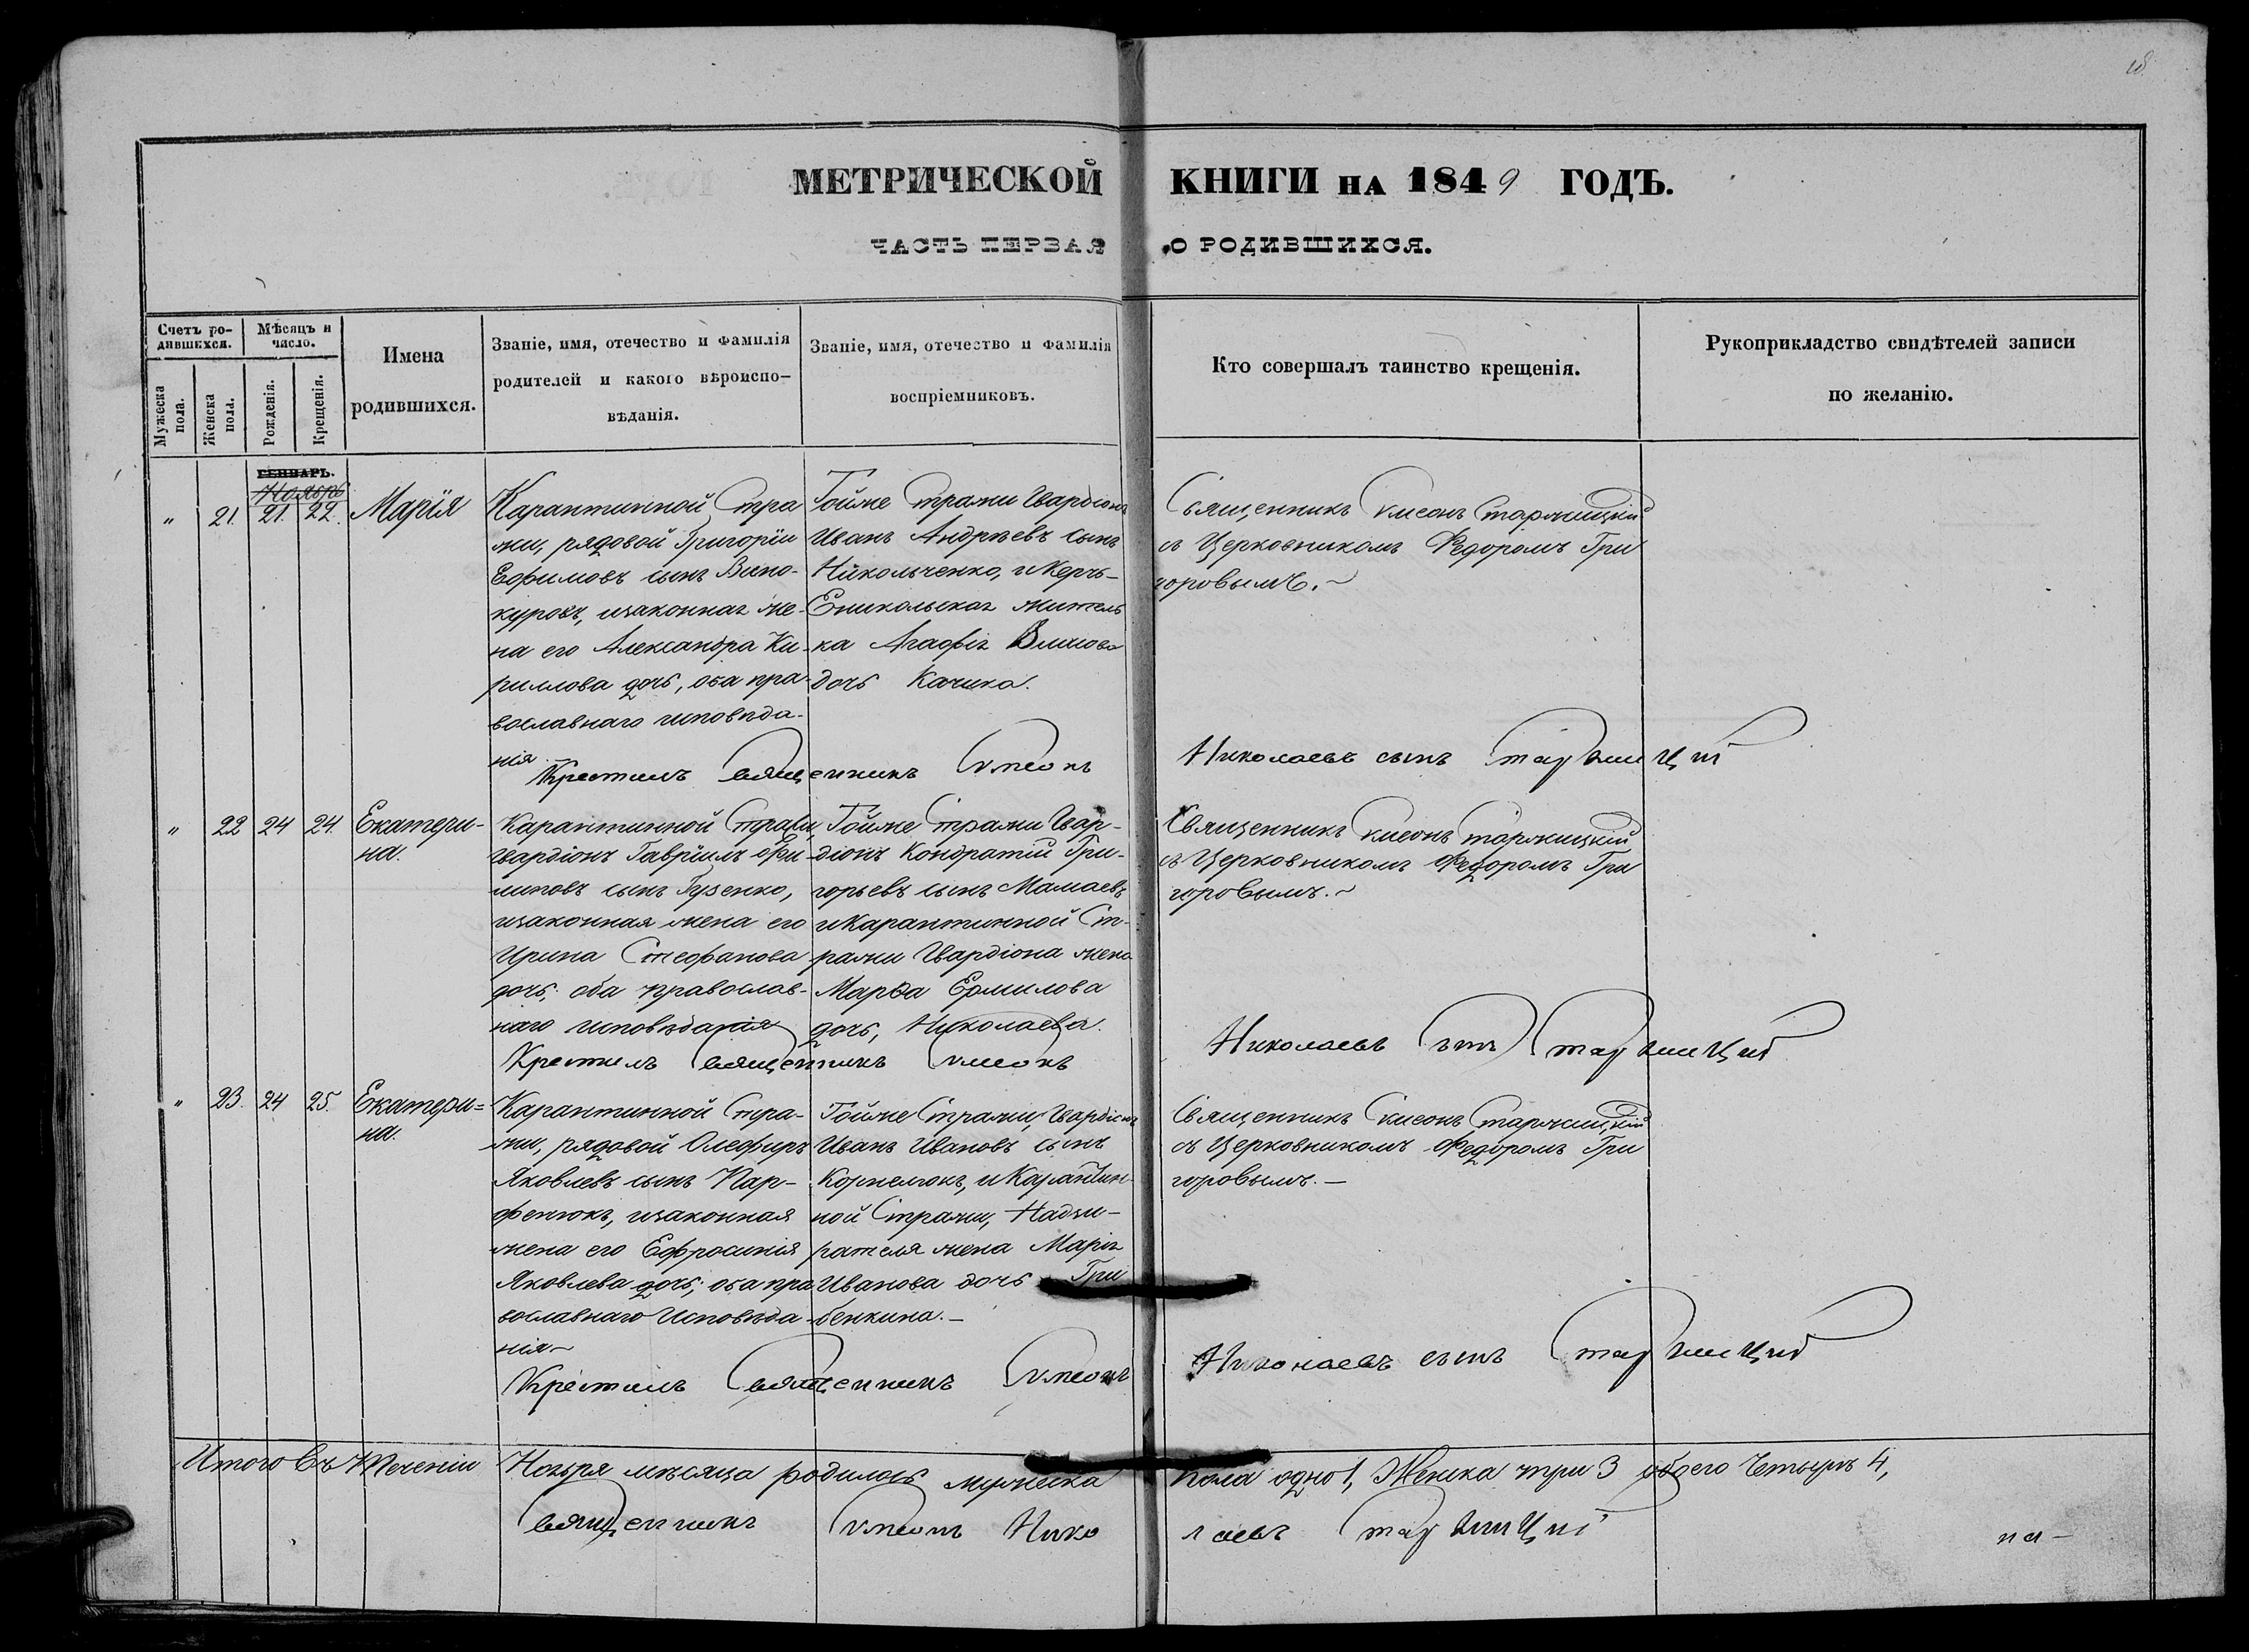 18
МЕТРИЧЕСКОЙ КНИГИ НА 1849 ГОДЪ.
ЧАСТЬ ПЕРВАЯ О РОДИВШИХСЯ.
Счетъ ро-
дившихся.
Мужеска
пола.
Женска
пола.
Мѣсяцъ и
число.
Рожденія.
Крещенія.
Имена
родившихся.
Званіе, имя, отечество и фамилія
родителей и какого вѣроиспо-
вѣданія.
Званіе, имя, отечество и фамилія
воспріемниковъ.
Кто совершалъ таинство крещенія.
Рукоприкладство свидѣтелей записи
по желанію.
ГЕНВАРЬ.
Ноябрь
" 21. 21. 22. Марія
Карантинной Стра
жи, рядовой Григорій
Ефимовъ сынъ Вино-
куровъ, изаконная же-
на его Александра Ки-
риллова дочь, оба пра-
вославнаго исповѣда-
нія.
Тойже Стражи Гвардіонъ
Иванъ Андрѣевъ сынъ
Никольченко, и Керчь-
Еникольская житель
ка Агафія
дочь Качика.
Священникъ Симеонъ Старжицкій
съ Церковникомъ Федоромъ Гри
горовымъ.
Крестилъ Священникъ Симеонъ Николаевъ сынъ Старжицкій
" 22 24 24. Екатери-
на.
Карантинной Стражи
Гвардіонъ Гавріилъ Фи-
липовъ сынъ Гузенко,
изаконная жена его
Ирина Стефанова
дочь, оба православ-
наго исповѣданія
Тойже Стражи Гвар-
діонъ Кондратій Гри-
горьевъ сынъ Мамаевъ
и Карантинной Ст-
ражи Гвардіона жена
Марѳа Ермилова
дочь, Николаева.
Священникъ Симеонъ Старжицкій
съ Церковникомъ Федоромъ Гри
горовымъ.
Крестилъ Священникъ Симеонъ Николаевъ сынъ Старжицкій
" 23. 24 25. Екатери=
на.
Карантинной Стра-
жи, рядовой Олефиръ
Яковлевъ сынъ Пар-
фенюкъ, изаконная
жена его Ефросинія
Яковлева дочь; оба пра
вославнаго Исповѣда-
нія
Тойже Стражи, Гвардіонъ
Иванъ Ивановъ сынъ
Корнелюкъ, и Карантин-
ной Стражи, Надзи-
рателя жена Марія
Иванова дочь Гри
бенкина.
Священникъ Симеонъ Старжицкій
съ Церковникомъ Федоромъ Гри
горовымъ.
Крестилъ Священникъ Симеонъ Николаевъ сынъ Старжицкій
Итого Въ Теченіи Ноября мѣсяца родилось мужеска пола одно 1, Женска три 3 обоего Четыре 4,
Священникъ Симеонъ Николаевъ Старжицкій
на-